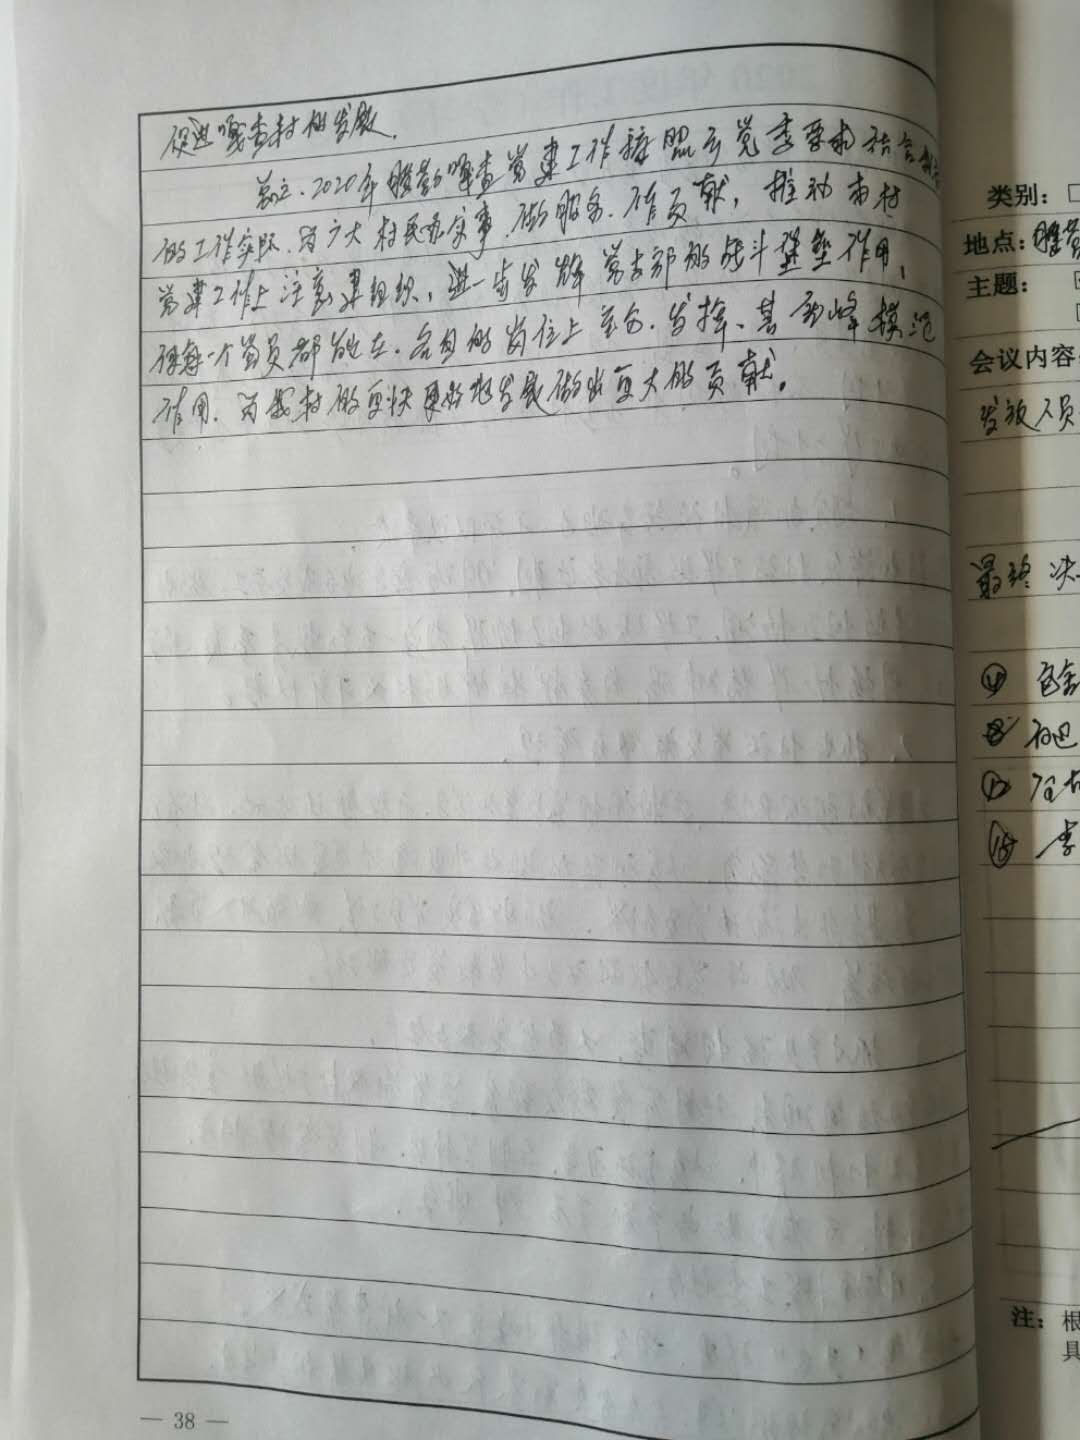 促进嘎查村的发展.
总之.2020年雅勒嘎查党建工作按照市党委要求结合
的工作实际.为广大村民办实事.做服务.作贡献,推动本村
党建工作上注意建组织,进一步发挥党支部的战斗堡垒作用,
使每一个党员都能在.各自的岗位上充分.发挥、其 模范
作用.为我村的更快更好地发展做出更大的贡献。
— 38 —
类别：
地点：
主题：
会议内容
发放人员
最终 决
注： 根
具